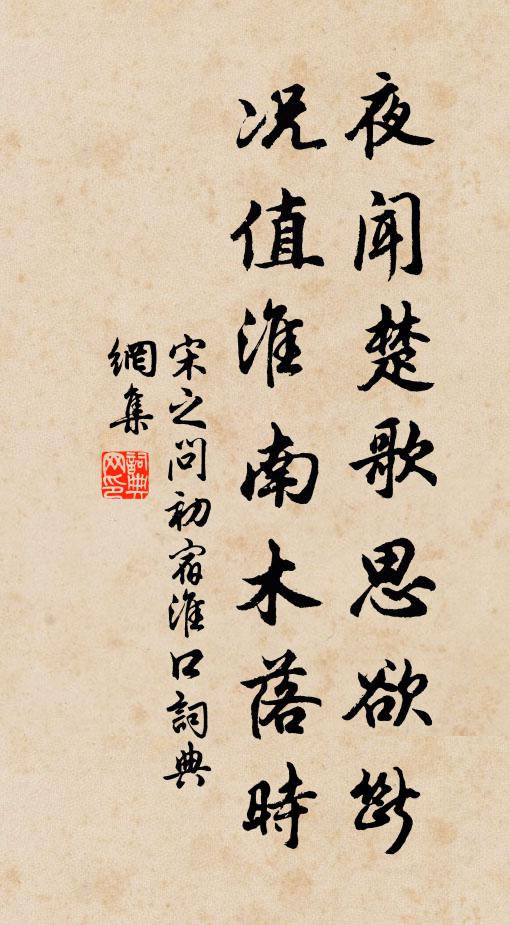 夜闻楚歌思欲断
况值淮南木落时
宋之问初宿淮口詞典
網集
詞典
网印